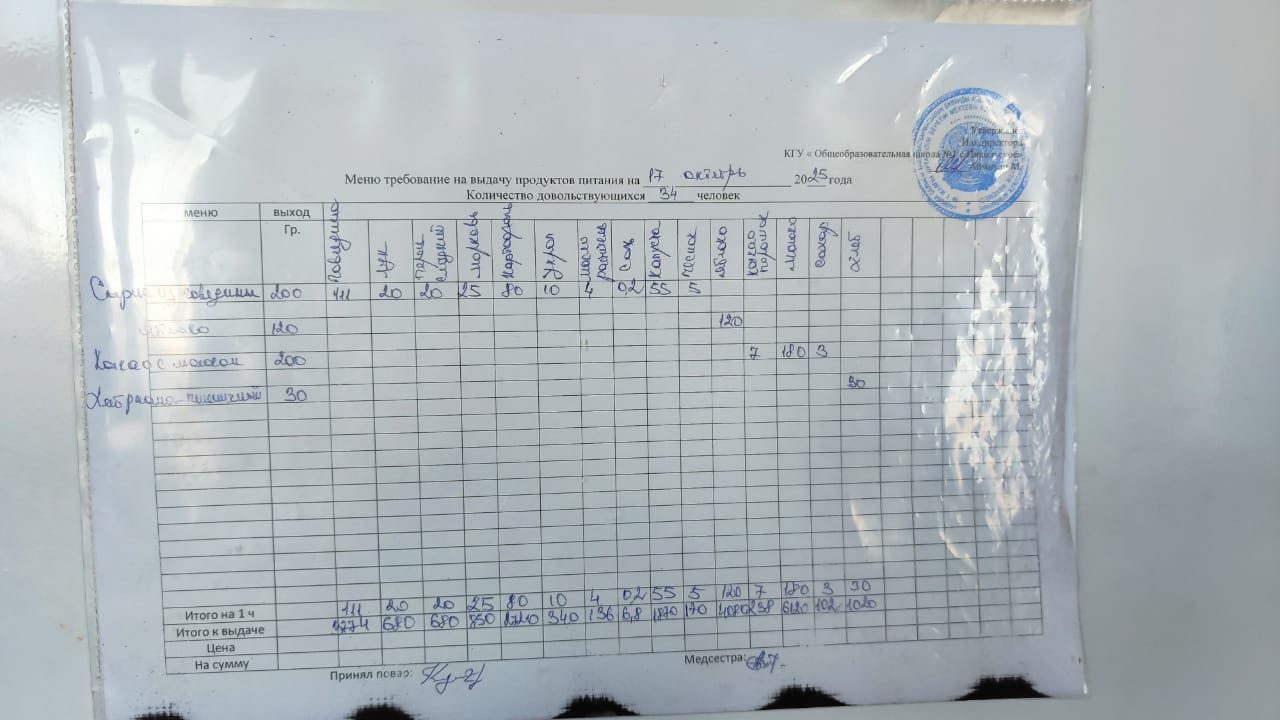 Утвержд
И.о директора
КГУ « Общеобразовательная школа №1 с
М.
Меню требование на выдачу продуктов питания на 17 октябрь 2025 года
Количество довольствующихся 34 человек
меню выход Гр. говядина лук перец сладкий морковь картофель укроп масло растит соль капуста чеснок яблоко какао порошок молоко сахар хлеб
из говядины 200 111 20 20 25 80 10 4 0,2 55 5
яблоко 120 120
Какао с молоком 200 7 180 3
30 30
Итого на 1 ч 111 20 20 25 80 10 4 0,2 55 5 120 7 180 3 30
Итого к выдаче 3774 680 680 850 2720 340 136 6,8 1870 170 4080 238 6120 102 1020
Цена
На сумму
Принял повар:
Медсестра: